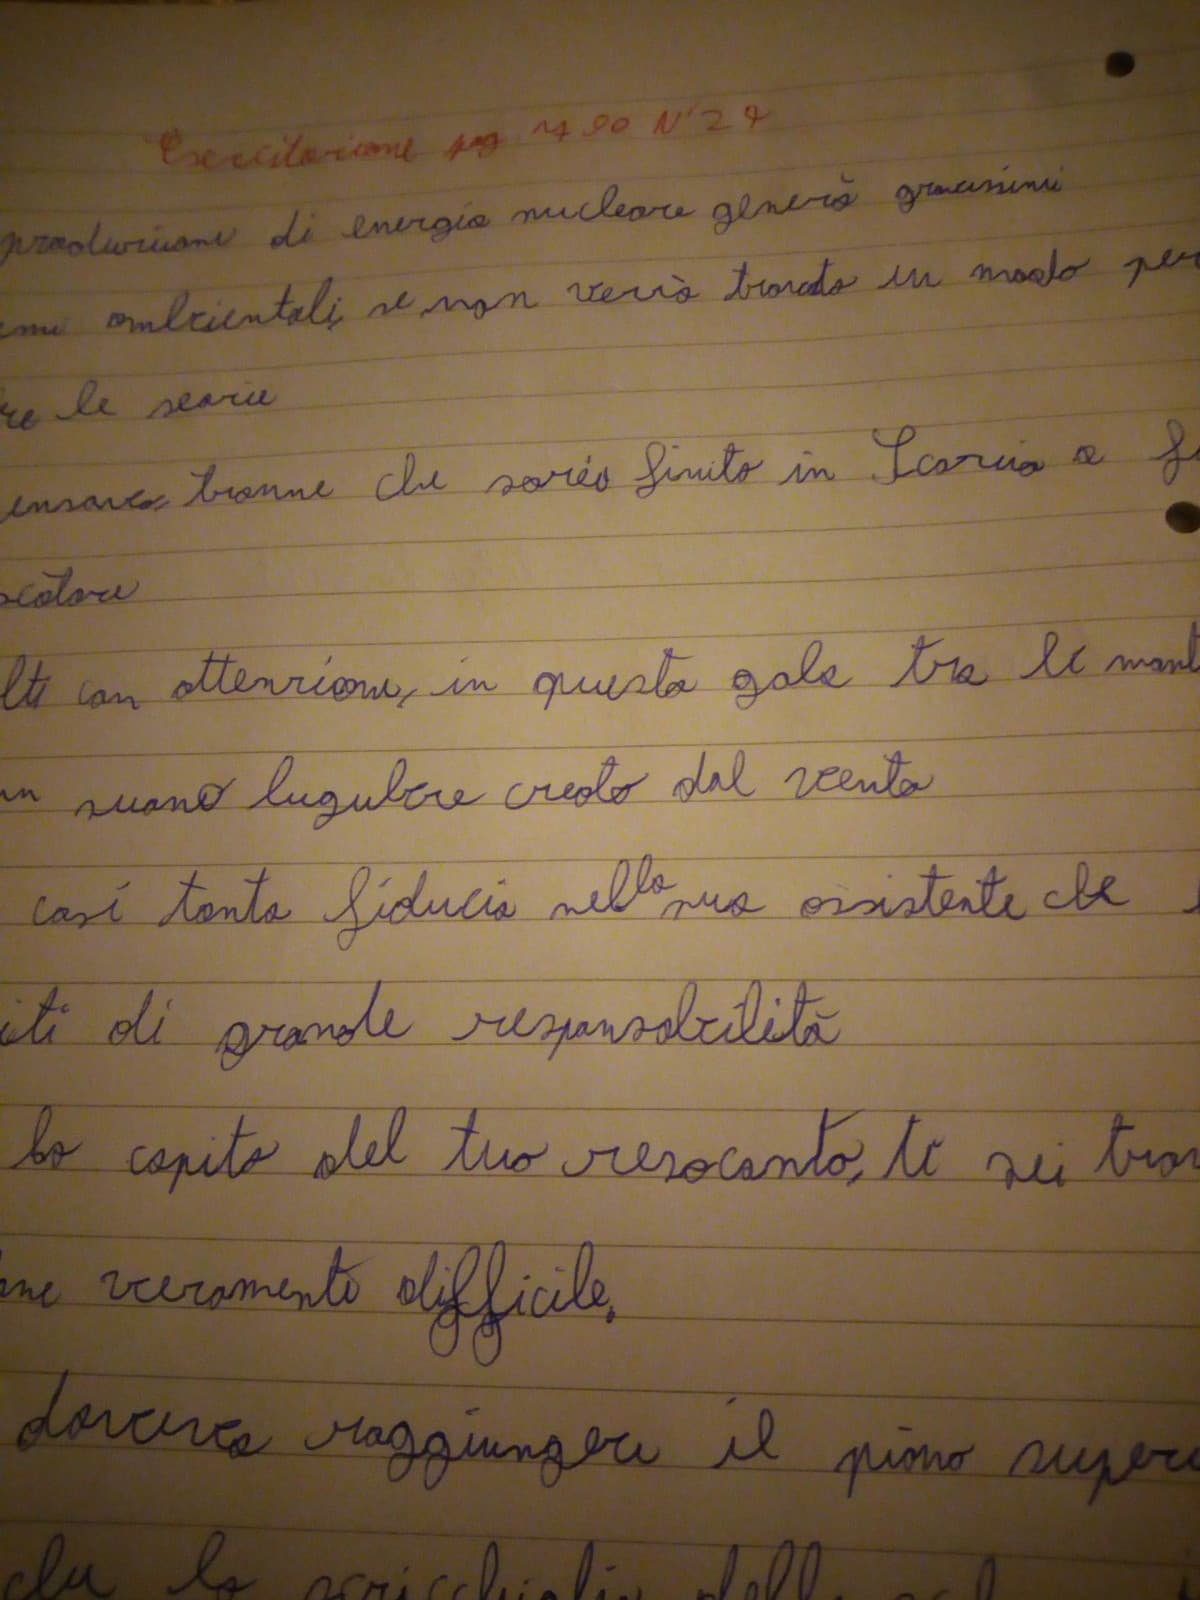 Esercitazione pag 190 N° 27
produzione di energia nucleare generà gravissimi
emi ambientali, se non verrà trovato un modo per
re le scorie
ensare, tranne che sarei finito in Scozia a f
scatore
lti con attenzione, in questa gola tra le mont
un suono lugubre creato dal vento
così tanta fiducia nella sua assistente che
iti di grande responsabilità
ho capito dal tuo resoconto, ti sei trov
one veramente difficile.
doveva raggiungere il piano super
che lo scricchiolio delle